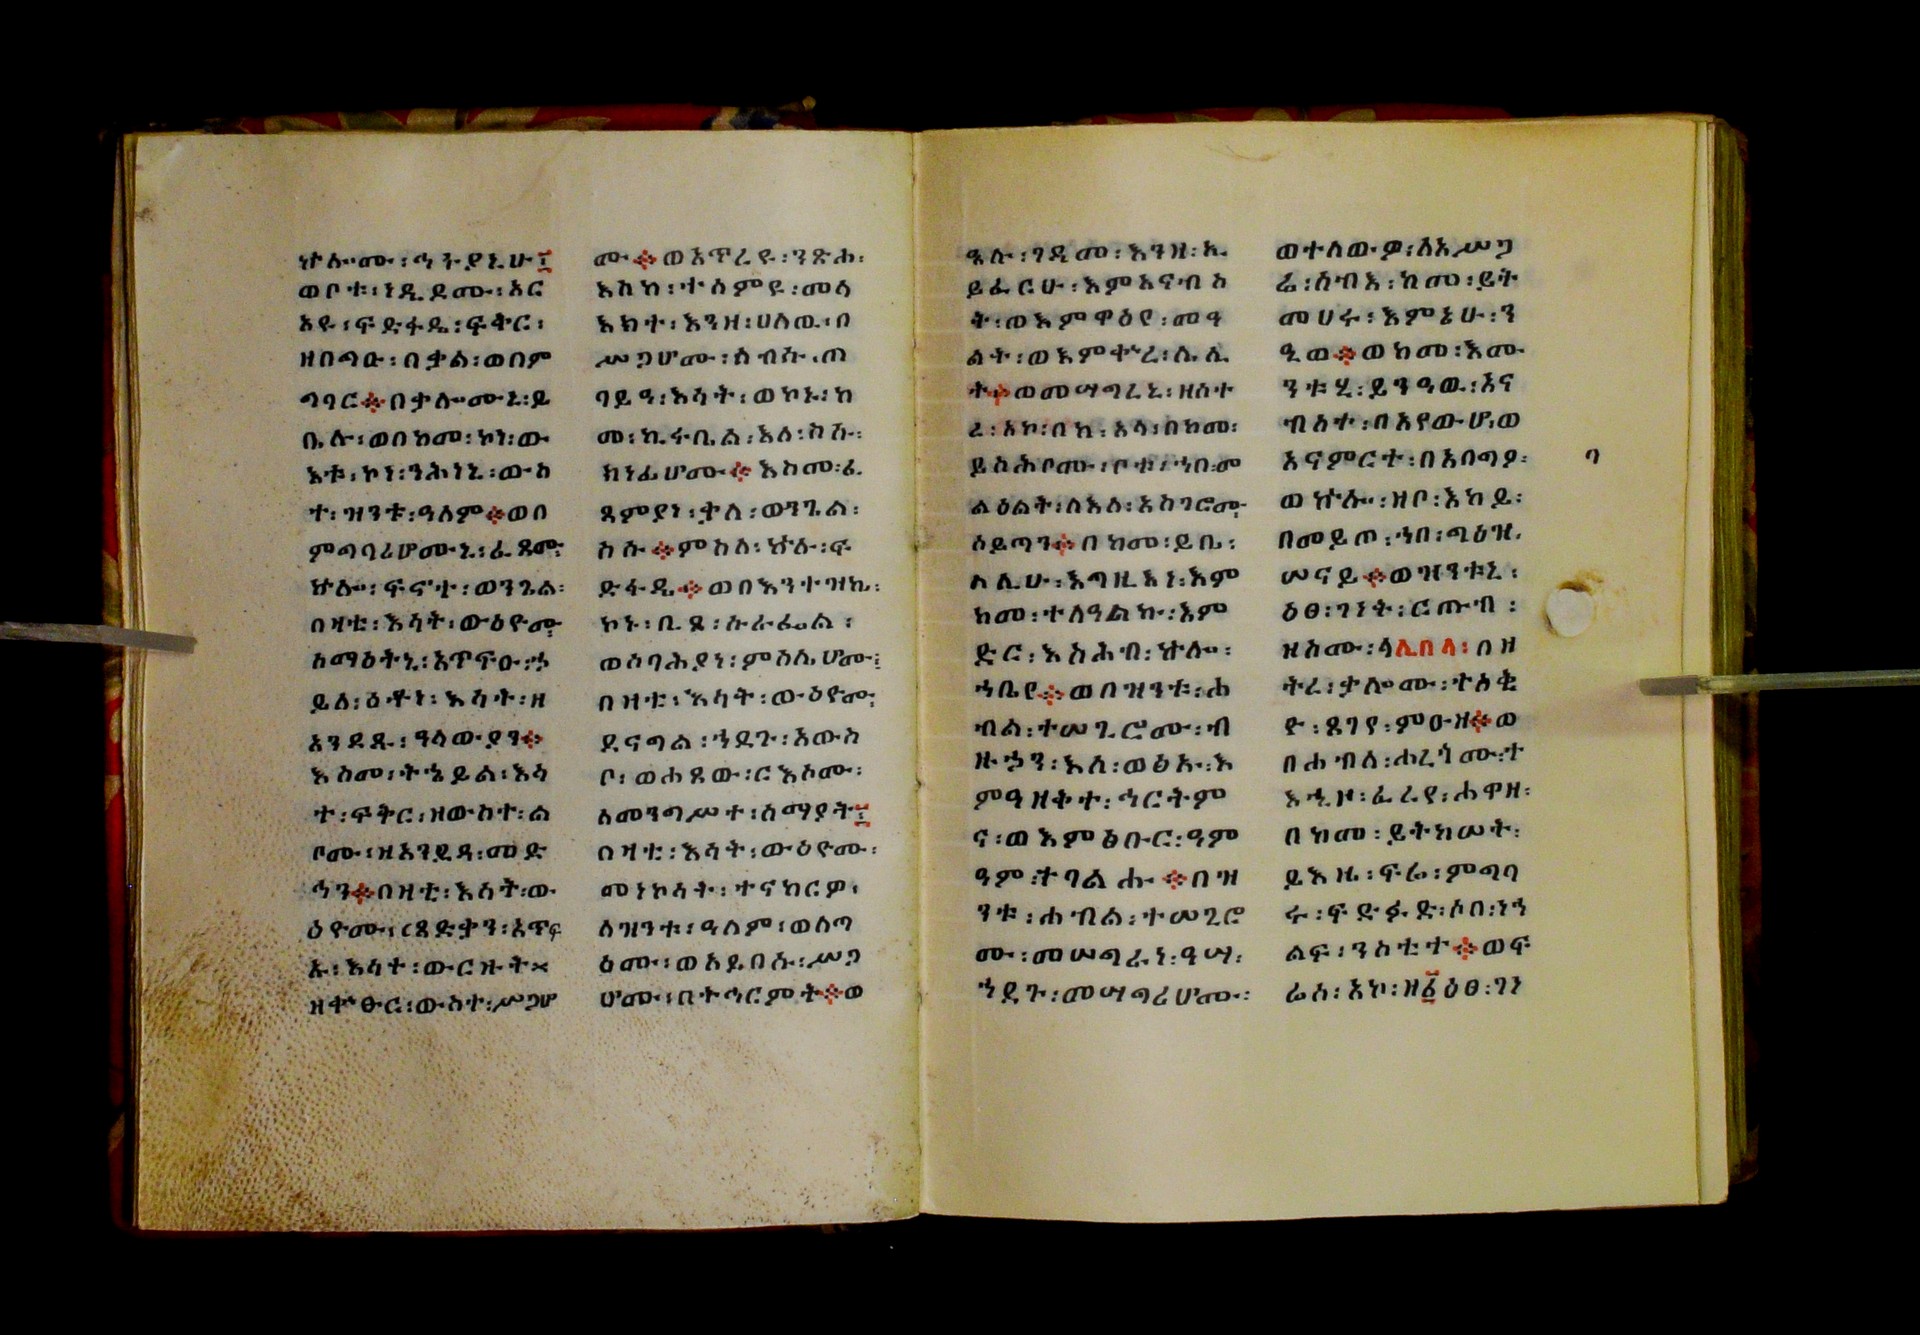 ኵሎሙ፡ ኅኍያኒሁ፤
ወቦቱ፡ ነዲዶሙ፡ አር
አዩ፡ ፍድፋዴ፡ ፍትር፡
ዘበጣው፡ በቃል፡ ወበም
ግባር፨ በቃሎሙኒ፡ ይ
ቤሉ፡ ወበከመ፡ ኮነ፡ ው
እቱ፡ ኮነ፡ ንሕነኒ፡ ውስ
ተ፡ ዝንቱ፡ ዓለም፨ ወበ
ምግባሪሆሙኒ፡ ፈጸሙ
ኵሎ፡ ፍኖተ፡ ወንጌል፡
በዛቲ፡ እሳት፡ ውዕዮሙ
ሰማዕትኒ፡ አጥፍዑ፡ ኃ
ይለ፡ ዕቶነ፡ እሳት፡ ዘ
አንደዱ፡ ዓላውያን፨
እስመ፡ ትኄይል፡ እሳ
ተ፡ ፍቅር፡ ዘውስተ፡ ል
ቦሙ፡ ዘአንደዳ፡ መድ
ኅን፨ በዛቲ፡ እሳት፡ ው
ዕዮሙ፡ ጻድቃን፡ አጥፍ
ኡ፡ እሳተ፡ ውርዙት
ዘትፀውር፡ ውስተ፡ ሥጋሆ
ሙ፨ ወአጥረዩ፡ ንጽሐ፡
እስከ፡ ተሰምዩ፡ መላ
እክተ፡ እንዘ፡ ሀለዉ፡ በ
ሥጋሆሙ፡ ሰብሱ፡ ጠ
ባይዓ፡ እሳት፡ ወኮኑ፡ ከ
መ፡ ኪሩቤል፡ እለ፡ ስሑ
ክነፊሆሙ፨ እስመ፡ ፈ
ጸምያነ፡ ቃለ፡ ወንጌል፡
ስሱ፨ ምስለ፡ ኵሉ፡ ፍ
ድፋዴ፨ ወበእንተዝኬ፡
ኮኑ፡ ቢጸ፡ ሱራፌል፡
ወሰባሕያነ፡ ምስሌሆሙ፤
በዛቲ፡ እሳት፡ ውዕዮሙ፡
ደናግል፡ ኀደጉ፡ አውስ
ቦ፡ ወሐጸው፡ ርእሶሙ፡
ለመንግሥተ፡ ሰማያት፤
በዛቲ፡ እሳት፡ ውዕዮሙ፡
መነኮሳት፡ ተናከርዎ፡
ለዝንቱ፡ ዓለም፡ ወለጣ
ዕሙ፡ ወአይበሱ፡ ሥጋ
ሆሙ፡ በተኅርምት፨ ወ
ዓሉ፡ ገዳመ፡ እንዘ፡ ኢ
ይፈርሁ፡ እምአናብስ
ት፡ ወእምዋዕየ፡ መዓ
ልት፡ ወእምቍረ፡ ሌሊ
ት፨ ወመሣግረኒ፡ ዘሰተ
ረ፡ አኮ፡ በከ፡ አላ፡ በከመ፡
ይስሕቦሙ፡ ቦቱ፡ ኀበ፡ መ
ልዕልት፡ ለእለ፡ አስገሮሙ
ሰይጣን፨ በከመ፡ ይቤ፡
ለሊሁ፡ እግዚእነ፡ እም
ከመ፡ ተለዓልኩ፡ እም
ድር፡ እስሕብ፡ ኵሎ፡
ኀቤየ፨ ወበዝንቱ፡ ሐ
ብል፡ ተመጊሮሙ፡ ብ
ዙኃን፡ እለ፡ ወፅኡ፡ እ
ምዓዘቅተ፡ ኅርትም
ና፡ ወእምፅቡር፡ ዓም
ዓም፡ ተባልሑ፨ በዝ
ንቱ፡ ሐብል፡ ተመጊሮ
ሙ፡ መሠግራነ፡ ዓሣ፡
ኀደጉ፡ መሣግሪሆሙ፡
ወተለውዎ፡ ለአሥጋ
ሬ፡ ሰብእ፡ ከመ፡ ይት
መሀሩ፡ እምኔሁ፡ ን
ዒወ፨ ወከመ፡ እሙ
ንቱሂ፡ ይንዓዉ፡ አና
ብስተ፡ በእየውሆ፡ ወ
አናምርተ፡ በአባግዕ፡
ባ
ወኵሎ፡ ዘቦ፡ እከይ፡
በመይጦ፡ ኀበ፡ ጫዕዝ
ሠናይ፨ ወዝንቱኒ፡
ዕፀ፡ ገነት፡ ርጡብ፡
ዘስሙ፡ ላሊበላ፡ በዘ
ትረ፡ ቃሎሙ፡ ተሰቂ
ዮ፡ ጸገየ፡ ምዑዘ፨ ወ
በሐብለ፡ ሐረጎሙ፡ ተ
እኂዞ፡ ፈረየ፡ ሐዋዘ፡
በከመ፡ ይትከሠት፡
ይእዜ፡ ፍሬ፡ ምግባ
ሩ፡ ፍድፉድ፡ ሶበ፡ ነኀ
ልፍ፡ ንስቲተ፨ ወፍ
ሬሰ፡ አኮ፡ ዘ፩ዕፀ፡ ገነ